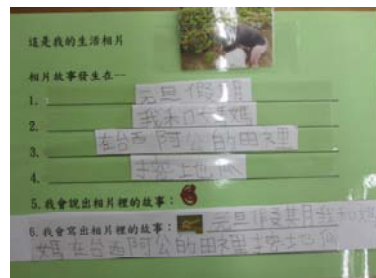 這是我的生活相片
相片故事發生在--
1. 元旦假期
2. 我和媽媽
3. 在台西阿公的田裡
4. 挖土地瓜
5. 我會說出相片裡的故事：
6. 我會寫出相片裡的故事： 元旦假期我和媽
媽在台西阿公的田裡挖地瓜